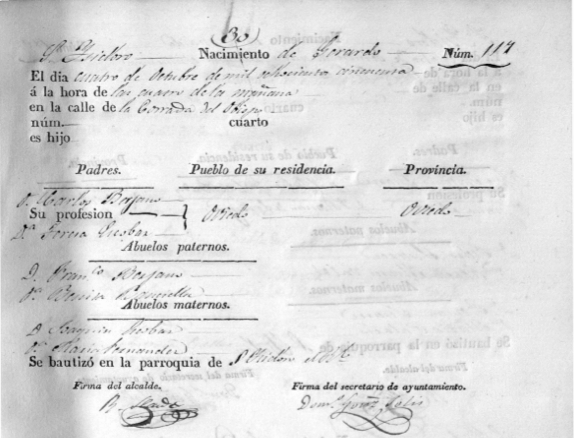 (30)
Sn. Isidoro Nacimiento de Gerardo Núm. 117
El dia cuatro de Octubre de mil ochocientos cincuenta
á la hora de las cuatro de la mañana
en la calle de la Corrada del Obispo
núm. cuarto
es hijo
Padres. Pueblo de su residencia. Provincia.
Dn. Carlos Berjano
Su profesion Oviedo Oviedo
Da. Teresa Escobar
Abuelos paternos.
D. Franco. Berjano
Da. Benita
Abuelos maternos.
D. Joaquin Escobar
Da. Maria Fernandez
Se bautizó en la parroquia de Sn. Isidoro el
Firma del alcalde. Firma del secretario de ayuntamiento.